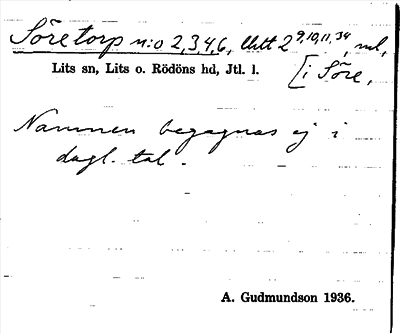 Söretorp n:o 2,3,4,6, litt 2 9,10,11,34, ml,
Lits sn, Lits o. Rödöns hd, Jtl. l. [i Söre,
Namnen begagnas ej i
dagl. tal.
A. Gudmundson 1936.